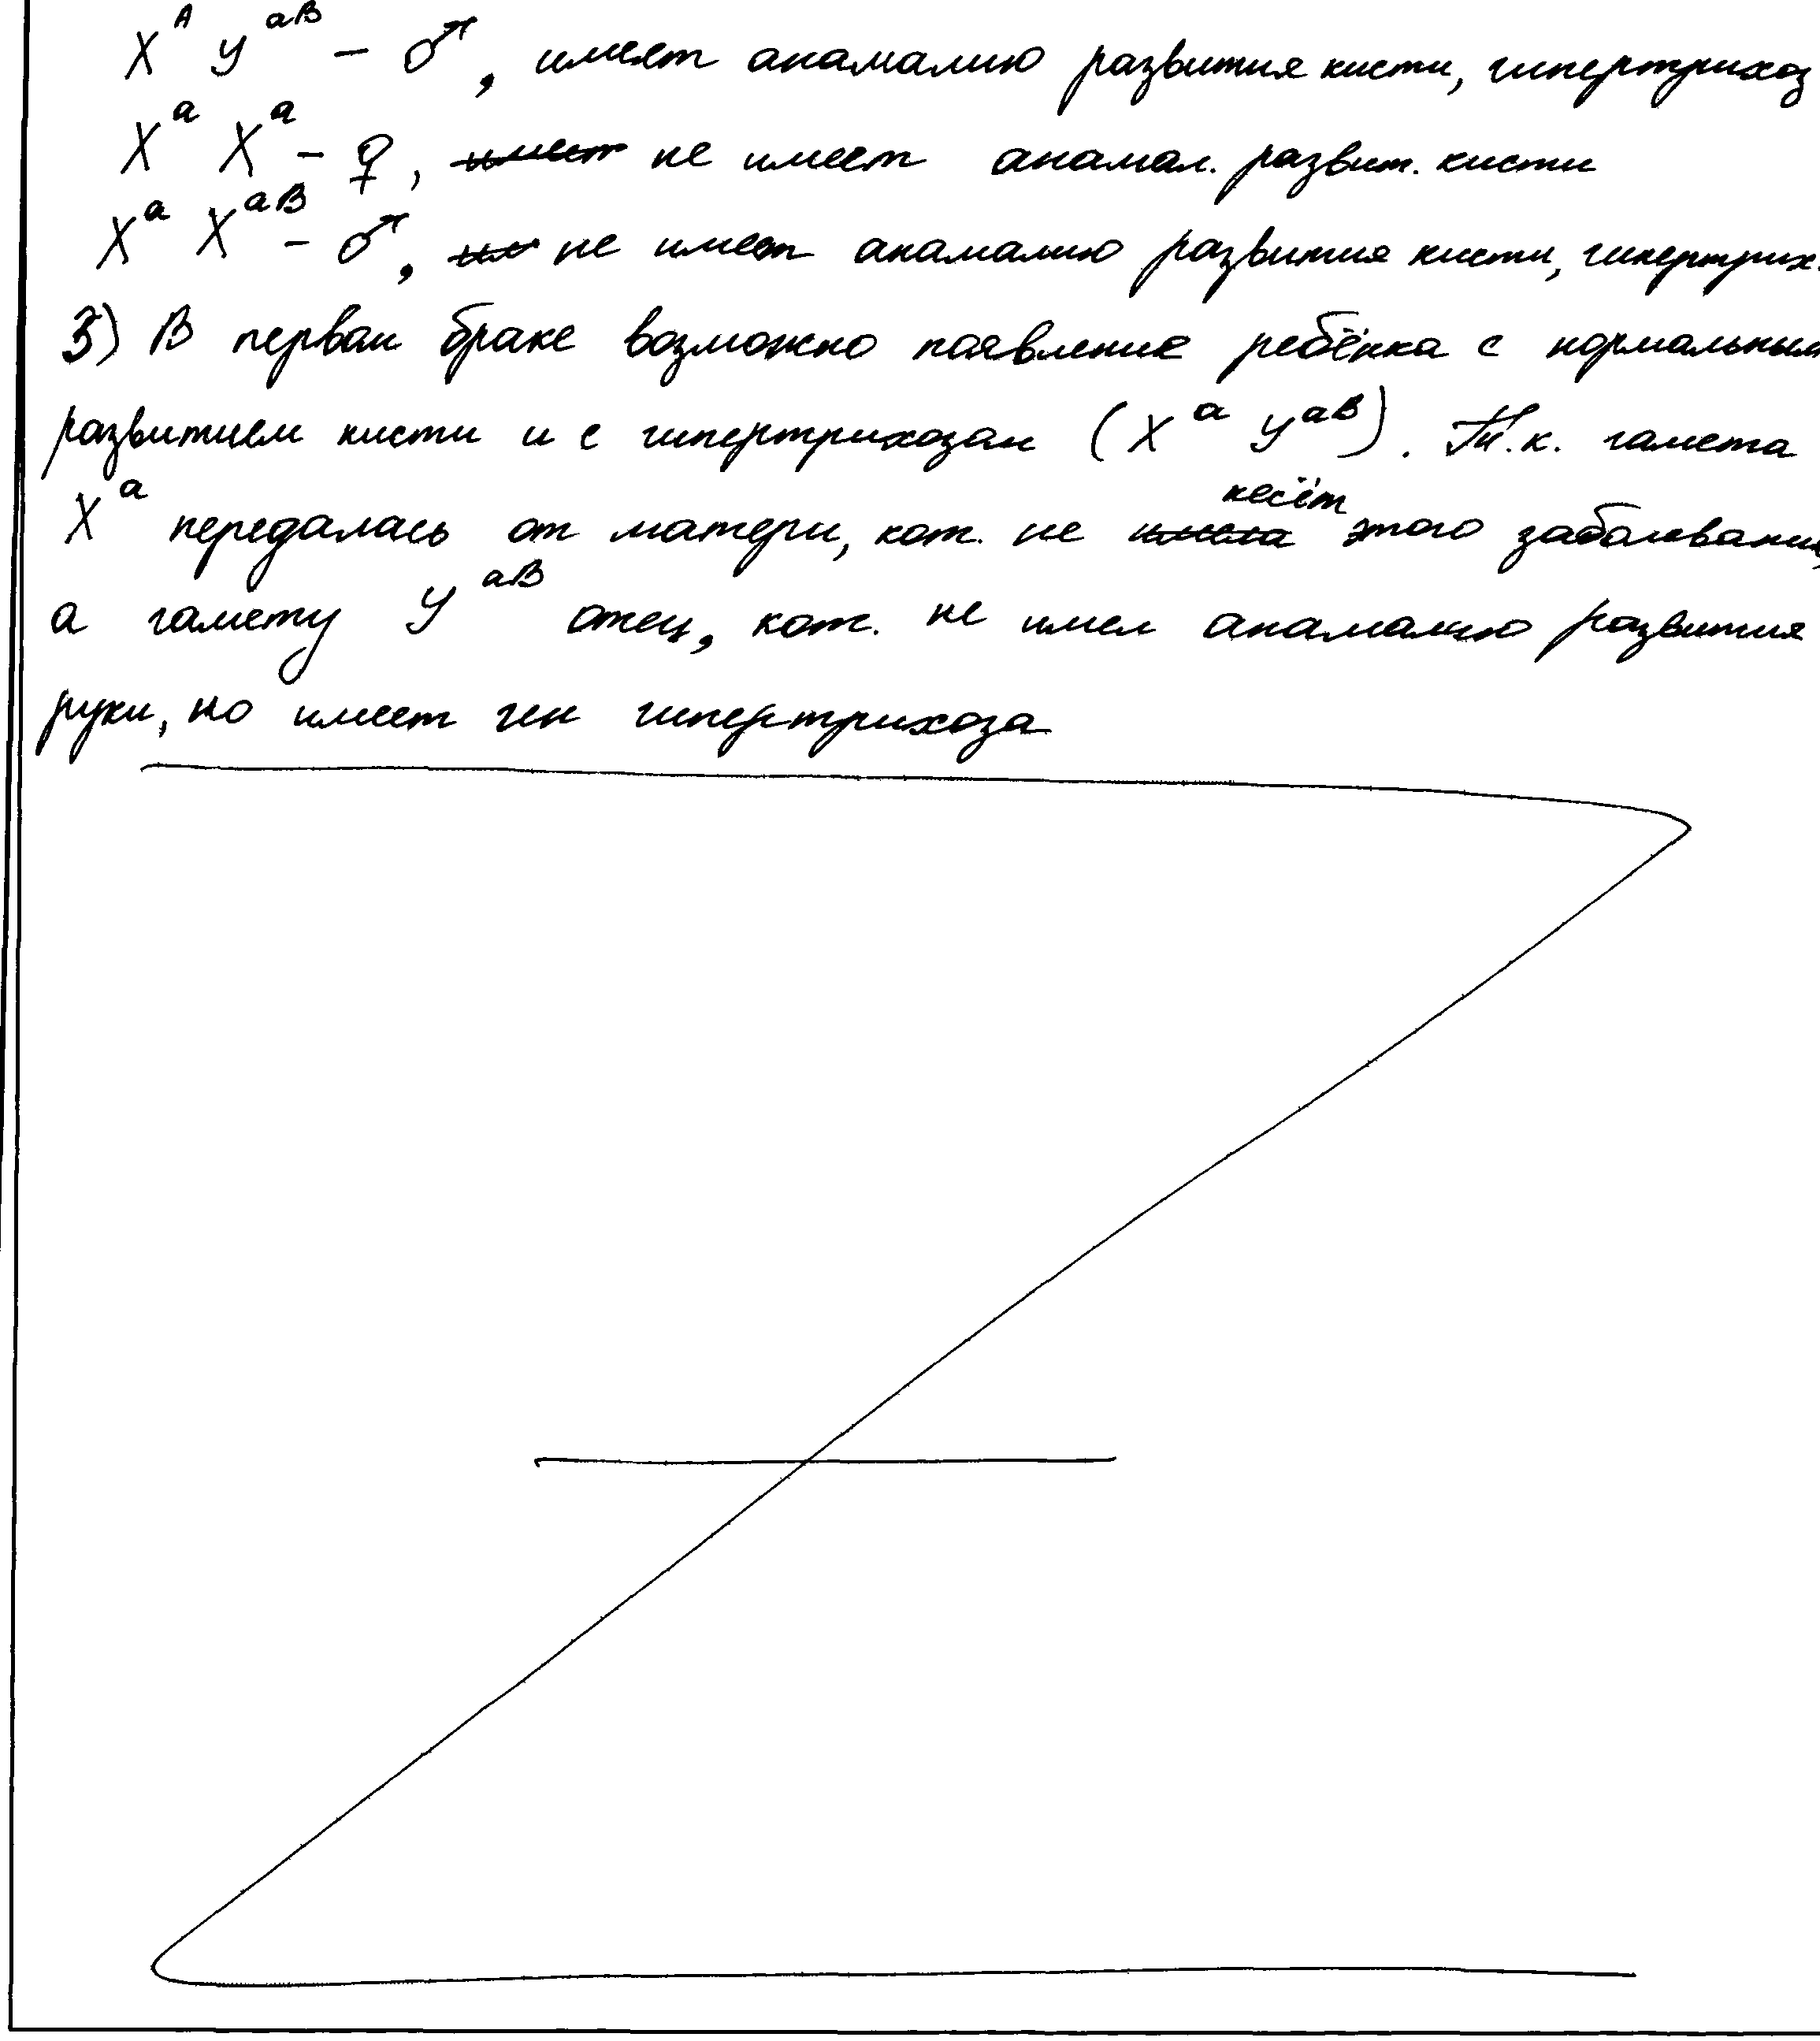 X^A У^аВ – ♂, имеет анамалию развития кисти, гипертрихоз
X^а X^а – ♀, не имеет анамал. развит. кисти
X^а X^аВ – ♂, не имеет анамалию развития кисти, гипертрих.
3) В первом браке возможно появление ребёнка с нормальным
развитием кисти и с гипертрихозом (X^а У^аВ). Т.к. гамета
X^а передалась от матери, кот. не несёт этого заболевания,
а гамету У^аВ отец, кот. не имел анамалию развития
руки, но имеет ген гипертрихоза